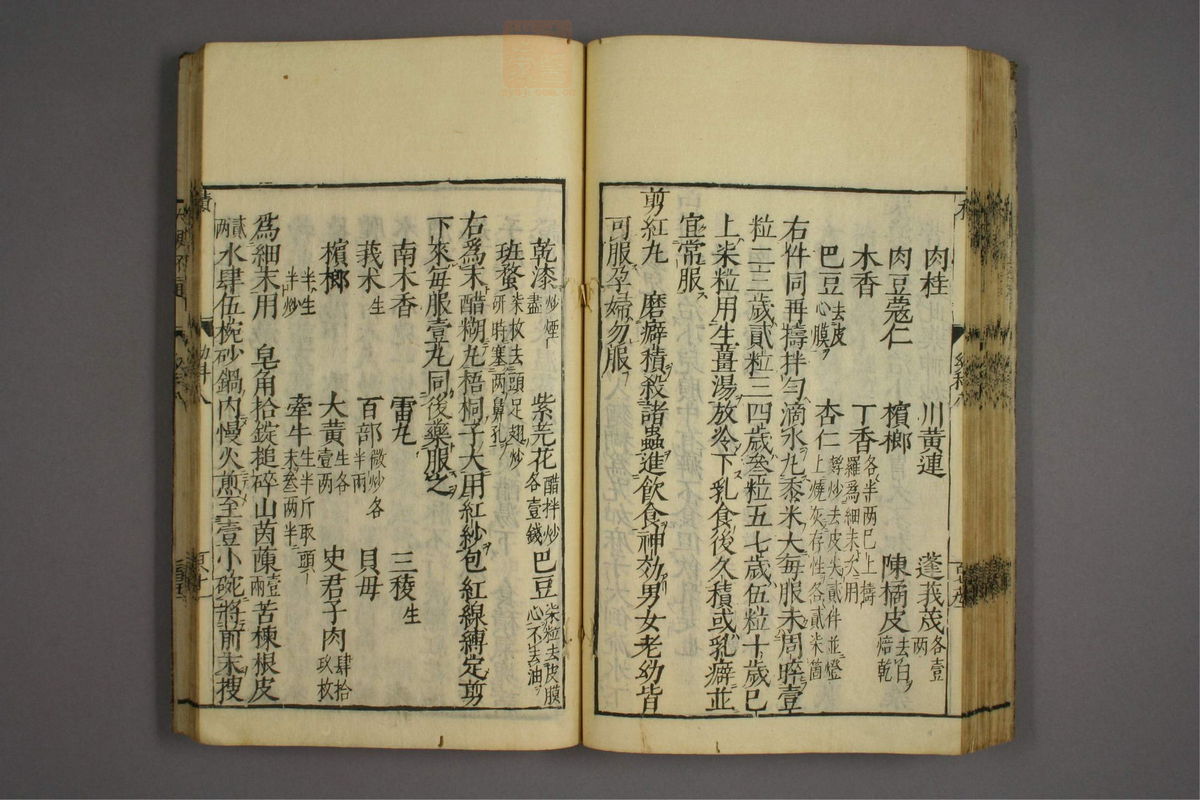 肉桂 川黃連 蓬莪茂各壹两
肉豆蔻仁 檳榔 陳橘皮去白焙乾
木香 丁香各半两巳上擣羅爲細末次用
巴豆去皮心膜 杏仁麩炒去皮尖貳件並燈上燒灰存性各貳柒箇
右件同再擣拌勻滴水丸黍米大每服未周晬壹
粒二三歲貳粒三四歲叄粒五七歲伍粒十歲巳
上柒粒用生薑湯放冷下乳食後久積或乳癖並
宜常服
剪紅丸 磨癖積殺諸蟲進飲食神効男女老幼皆
可服孕婦勿服
乾漆炒煙盡 紫芫花醋拌炒各壹錢 巴豆柒粒去皮膜心不去油
班蝥柒枚去頭足翅炒研時塞两鼻孔
右爲末醋糊丸梧桐子大用紅紗包紅線縛定剪
下來每服壹丸同後藥服之
南木香 雷丸 三稜生
莪术生 百部微炒各半兩 貝母
檳榔半生半炒 大黃生各壹两 史君子肉肆拾玖枚
牽牛生半斤取頭末叄两半
爲細末用 皂角拾錠槌碎山茵蔯壹兩苦楝根皮
貳两水肆伍椀砂鍋內慢火煎至壹小碗將前末搜